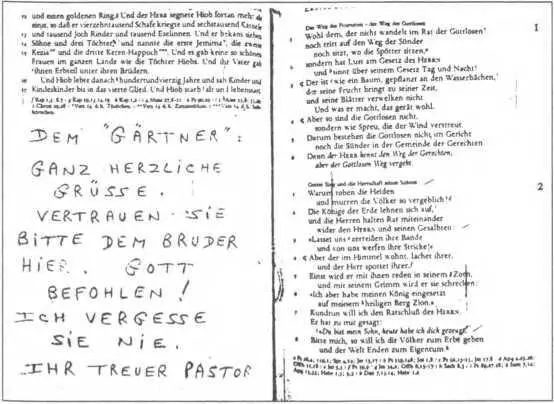 und einen goldenen Ring. Und der HERR segnete Hiob fortan mehr
einst, so daß er vierzehntausend Schafe kriegte und sechstausend Kamele
und tausend Joch Rinder und tausend Eselinnen. Und er bekam sieben
Söhne und drei Töchter und nannte die erste Jemima, die zweite
Kezia und die dritte Keren-Happuch. Und es gab keine so schönen
Frauen im ganzen Lande wie die Töchter Hiobs. Und ihr Vater gab
ihnen Erbteil unter ihren Brüdern.
Und Hiob lebte danach hundertundvierzig Jahre und sah Kinder und
Kindeskinder bis in das vierte Glied. Und Hiob starb alt und lebenssatt.
DEM "GÄRTNER":
GANZ HERZLICHE
GRÜSSE.
VERTRAUEN SIE
BITTE DEM BRUDER
HIER. GOTT
BEFOHLEN!
ICH VERGESSE
SIE NIE.
IHR TREUER PASTOR
Der Weg des Frommen – der Weg des Gottlosen
1
Wohl dem, der nicht wandelt im Rat der Gottlosen
noch tritt auf den Weg der Sünder
noch sitzt, wo die Spötter sitzen,
sondern hat Lust am Gesetz des HERRN
und sinnt über seinem Gesetz Tag und Nacht!
Der ist wie ein Baum, gepflanzt an den Wasserbächen,
der seine Frucht bringt zu seiner Zeit,
und seine Blätter verwelken nicht.
Und was er macht, das gerät wohl.
Aber so sind die Gottlosen nicht,
sondern wie Spreu, die der Wind verstreut.
Darum bestehen die Gottlosen nicht im Gericht
noch die Sünder in der Gemeinde der Gerechten.
Denn der HERR kennt den Weg der Gerechten,
aber der Gottlosen Weg vergeht.
Gottes Sieg und die Herrschaft seines Sohnes
2
Warum toben die Heiden
und murren die Völker so vergeblich?
Die Könige der Erde lehnen sich auf,
und die Herren halten Rat miteinander
wider den HERRN und seinen Gesalbten:
»Lasset uns zerreißen ihre Bande
und von uns werfen ihre Stricke!«
Aber der im Himmel wohnt, lachet ihrer,
und der Herr spottet ihrer.
Einst wird er mit ihnen reden in seinem Zorn,
und mit seinem Grimm wird er sie schrecken:
»Ich aber habe meinen König eingesetzt
auf meinem heiligen Berg Zion.«
Kundtun will ich den Ratschluß des HERRN.
Er hat zu mir gesagt:
»Du bist mein Sohn, heute habe ich dich gezeugt.
Bitte mich, so will ich dir Völker zum Erbe geben
und der Welt Enden zum Eigentum.